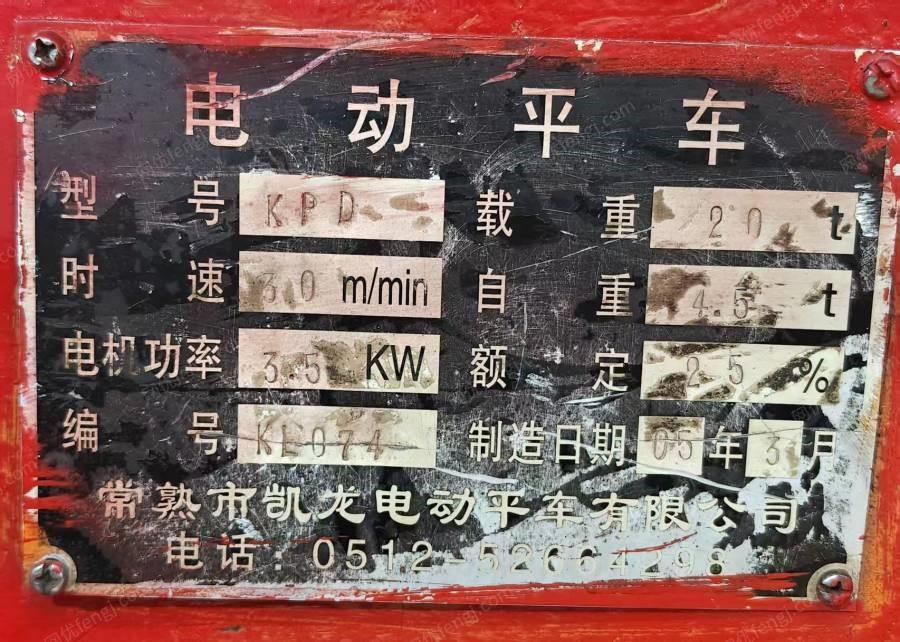 电动平车
型号 KPD 载重 20 t
时速 30 m/min 自重 4.5 t
电机功率 3.5 KW 额定 25 %
编号 KL074 制造日期 05年3月
常熟市凯龙电动平车有限公司
电话：0512-52664298